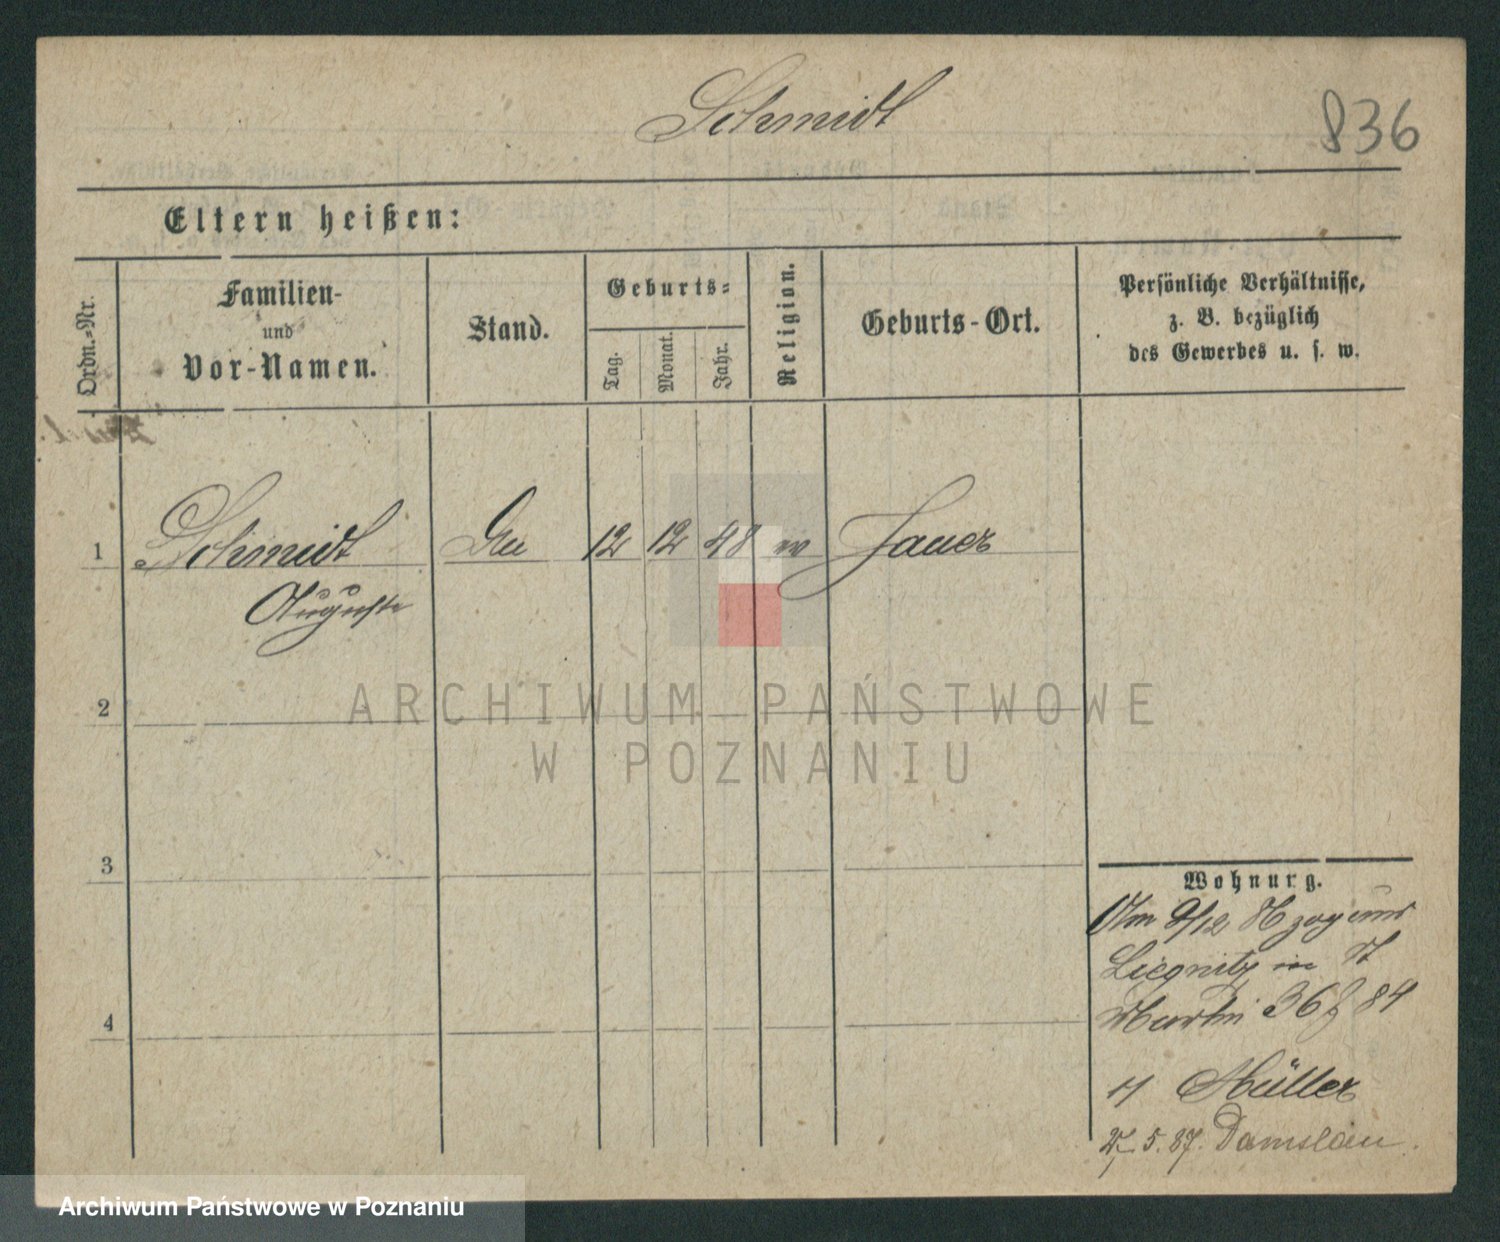 Schmidt
836
Eltern heißen:
Ordn.-Nr.
Familien-
und
Vor-Namen.
Stand.
Geburts-
Tag.
Monat.
Jahr.
Religion.
Geburts-Ort.
Persönliche Verhältnisse,
z. B. bezüglich
des Gewerbes u. s. w.
1 Schmidt 12 12 48 Jauer
Auguste
2
ARCHIWUM PAŃSTWOWE
W POZNANIU
3
4
Wohnung.
Am 9/12
Liegnitz in St
Martin 36 84
Müller
27. 5. 87. Damslau
Archiwum Państwowe w Poznaniu